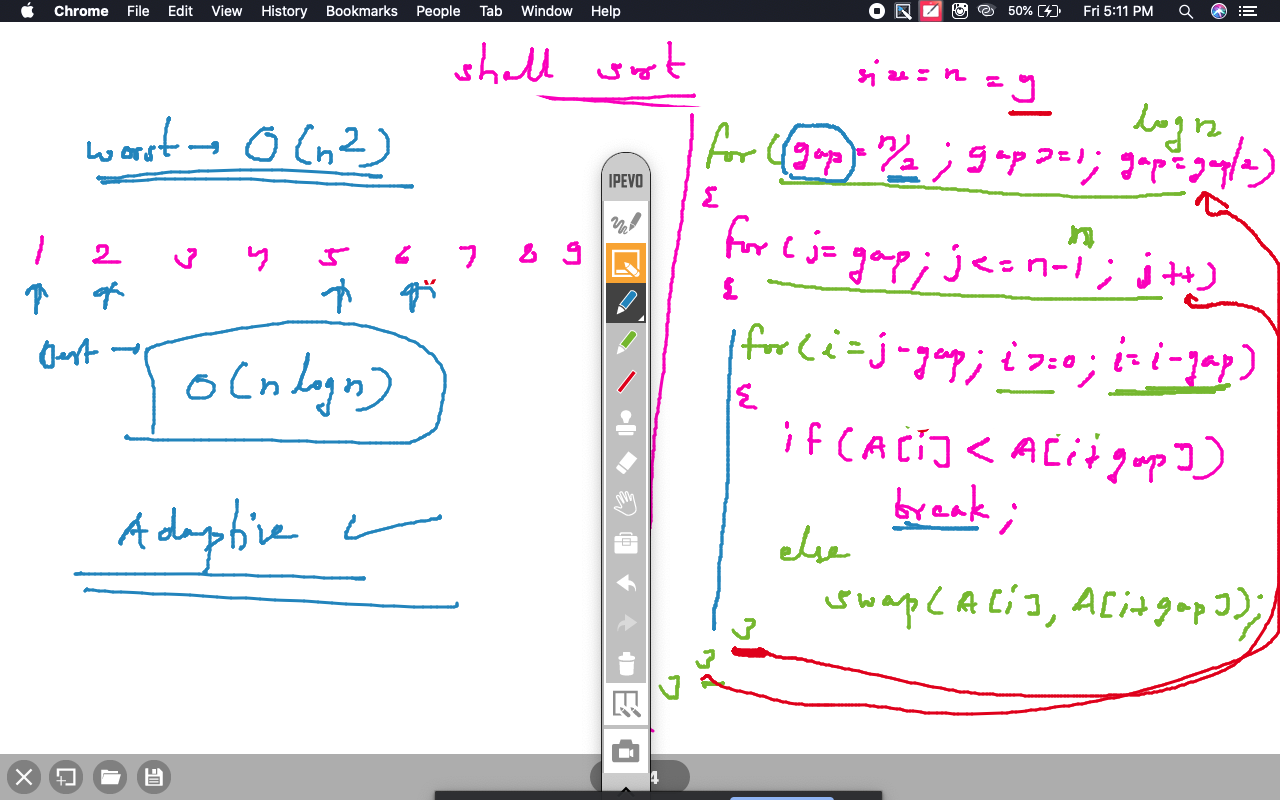 Chrome File Edit View History Bookmarks People Tab Window Help 50% Fri 5:11 PM
shell sort
size = n = 9
worst → O(n2)
1 2 3 4 5 6 7 8 9
Best → O(n logn)
Adaptive
IPEVO
logn
for (gap = n/2; gap >= 1; gap = gap/2)
{
n
for (j = gap; j <= n-1; j++)
{
for (i = j-gap; i >= 0; i = i-gap)
{
if (A[i] < A[i+gap])
break;
else
swap(A[i], A[i+gap]);
}
}
}
4